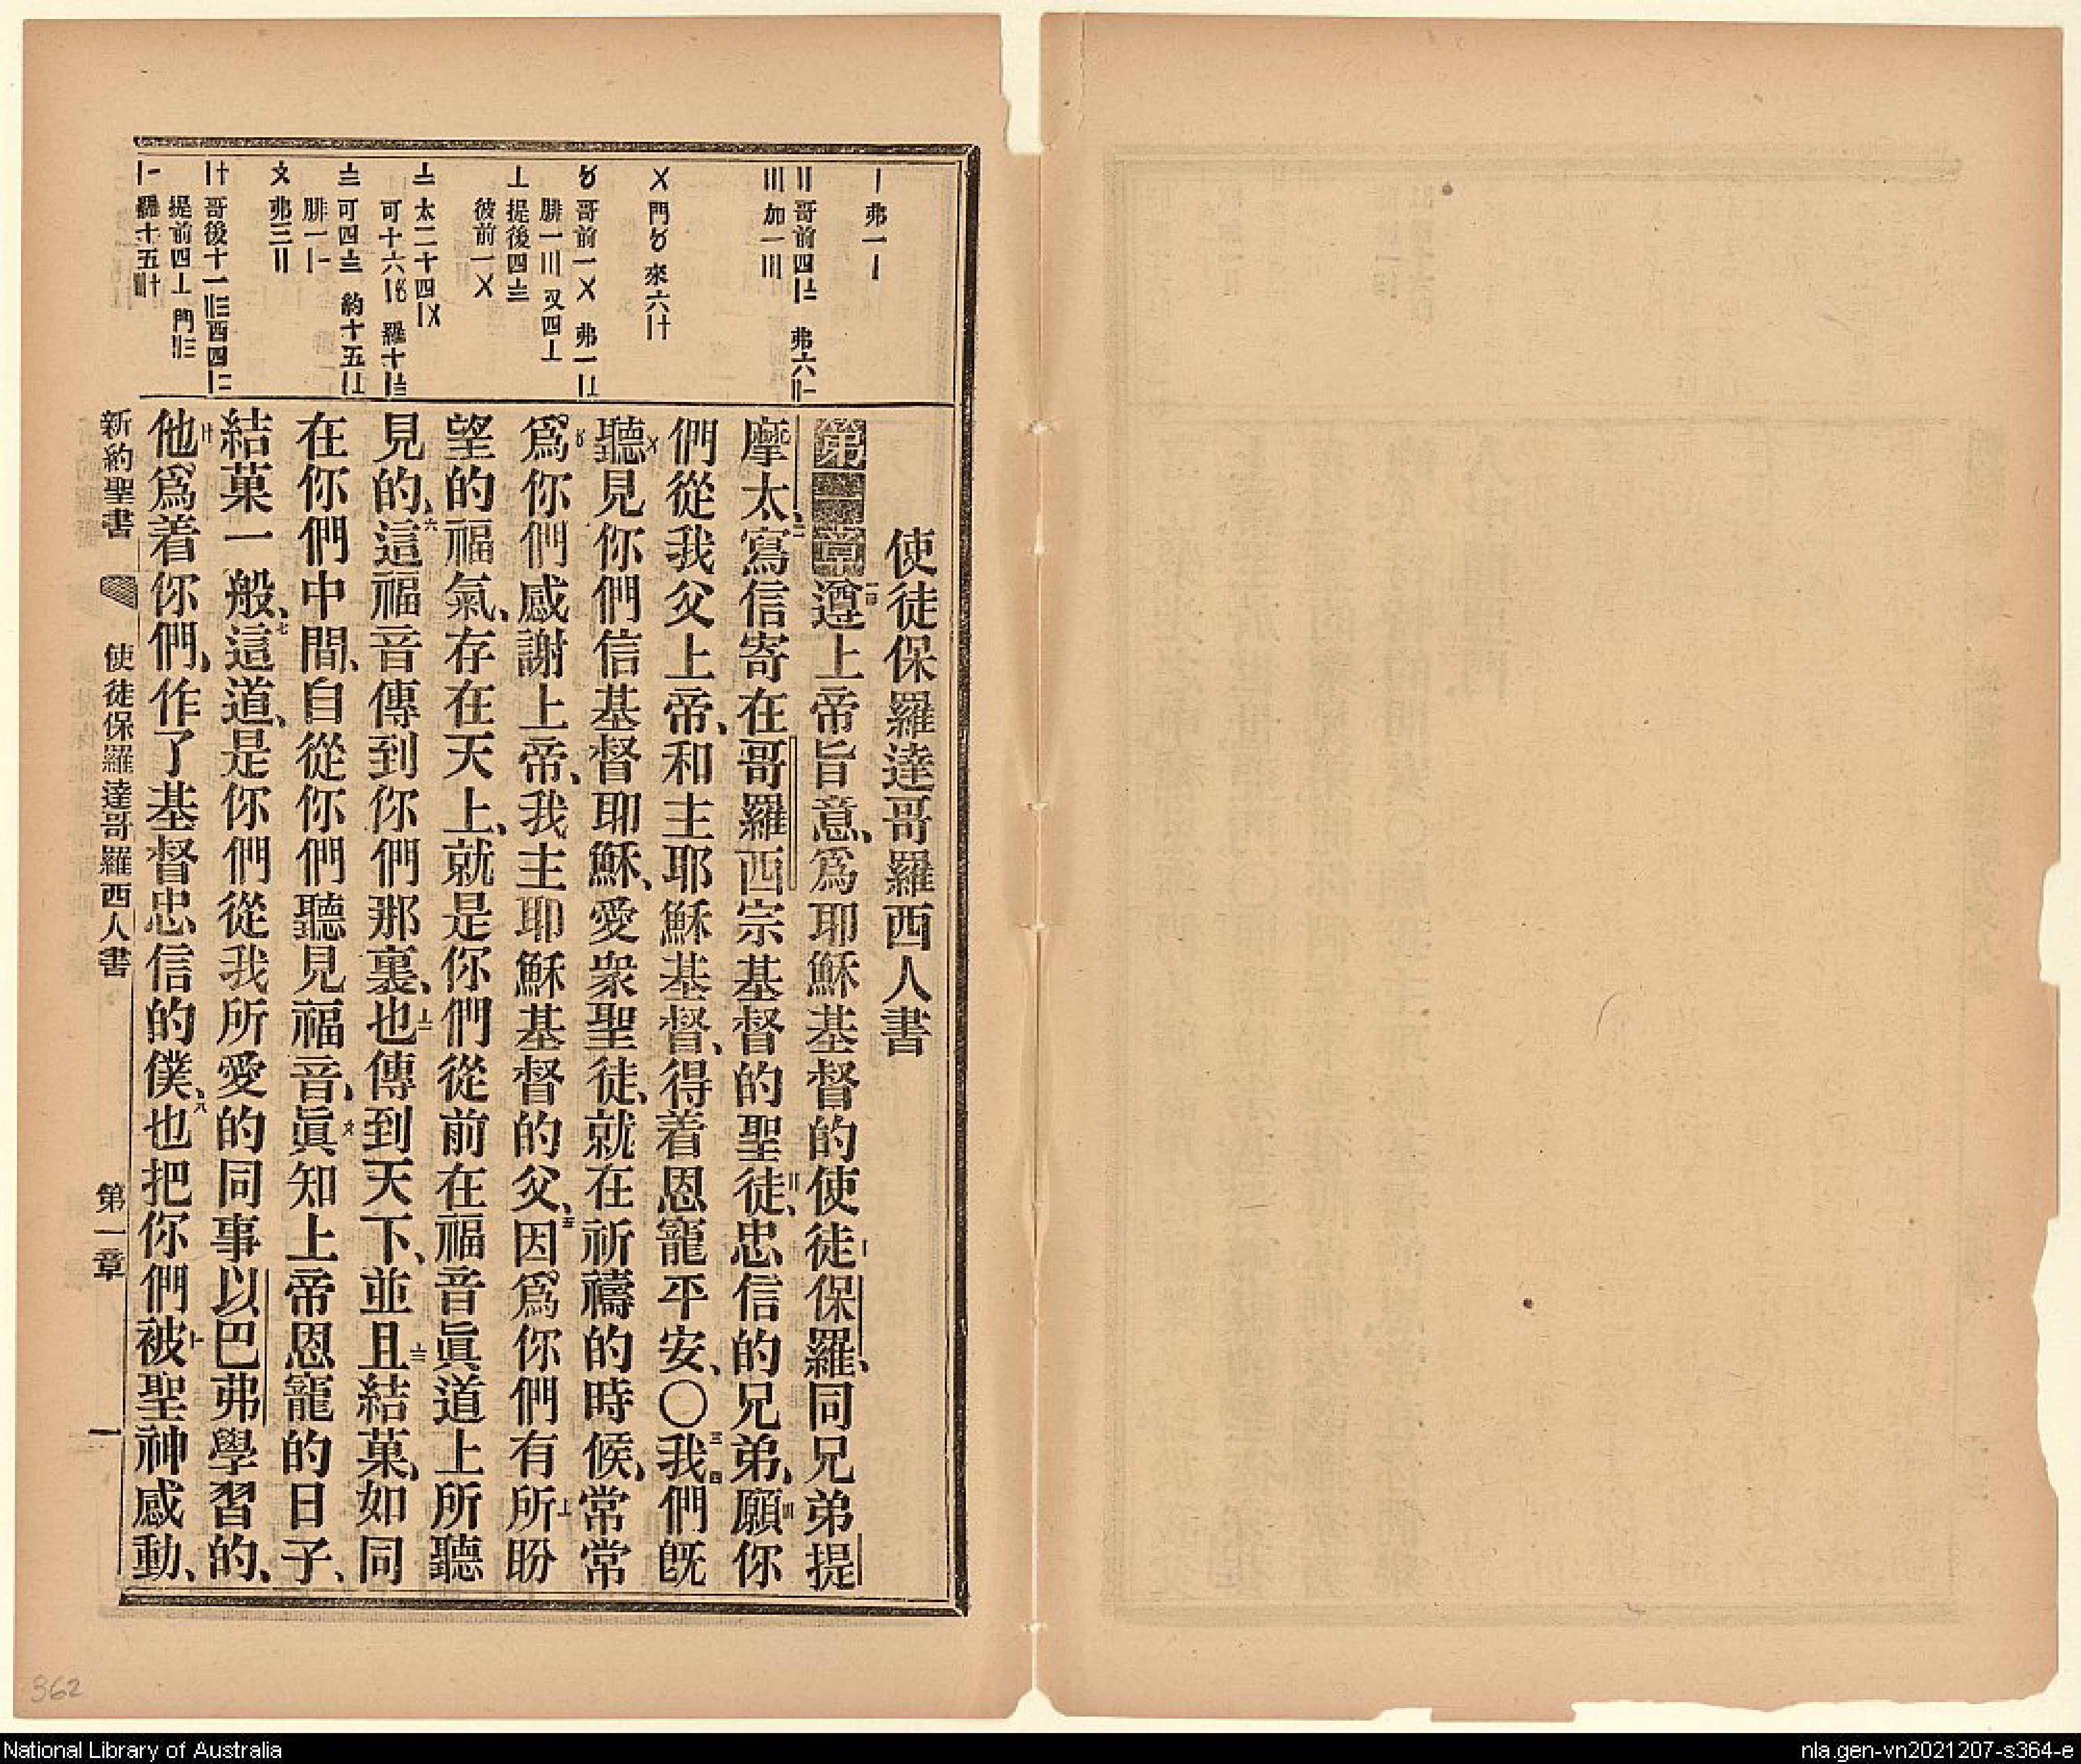 使徒保羅達哥羅西人書
第一章遵上帝旨意、爲耶穌基督的使徒保羅、同兄弟提
摩太、寫信寄在哥羅西宗基督的聖徒、忠信的兄弟、願你
們從我父上帝、和主耶穌基督、得着恩寵平安、〇我們旣
聽見你們信基督耶穌、愛衆聖徒、就在祈禱的時候、常常
爲你們感謝上帝、我主耶穌基督的父、因爲你們有所盼
望的福氣、存在天上、就是你們從前在福音眞道上所聽
見的、這福音傳到你們那裏、也傳到天下、並且結菓、如同
在你們中間、自從你們聽見福音、眞知上帝恩寵的日子、
結菓一般、這道、是你們從我所愛的同事以巴弗學習的、
他爲着你們、作了基督忠信的僕、也把你們被聖神感動、
〡弗一〡
〢哥前四〡〧 弗六〢一
〣加一〣
〤門〥 來六〡十
〥哥前一〤 弗一〡〦
腓一〣 又四〦
〦提後四〨
彼前一〤
〧太二十四〡〤
可十六〡〥 羅十〡〨
〨可四〨 約十五〡〦
腓一〡一
〩弗三〢
〡十哥後十一〢三西四〡二
提前四〦 門〢三
〡一羅十五〣十
新約聖書 使徒保羅達哥羅西人書 第一章 一
362
National Library of Australia
nla.gen-vn2021207-s364-e